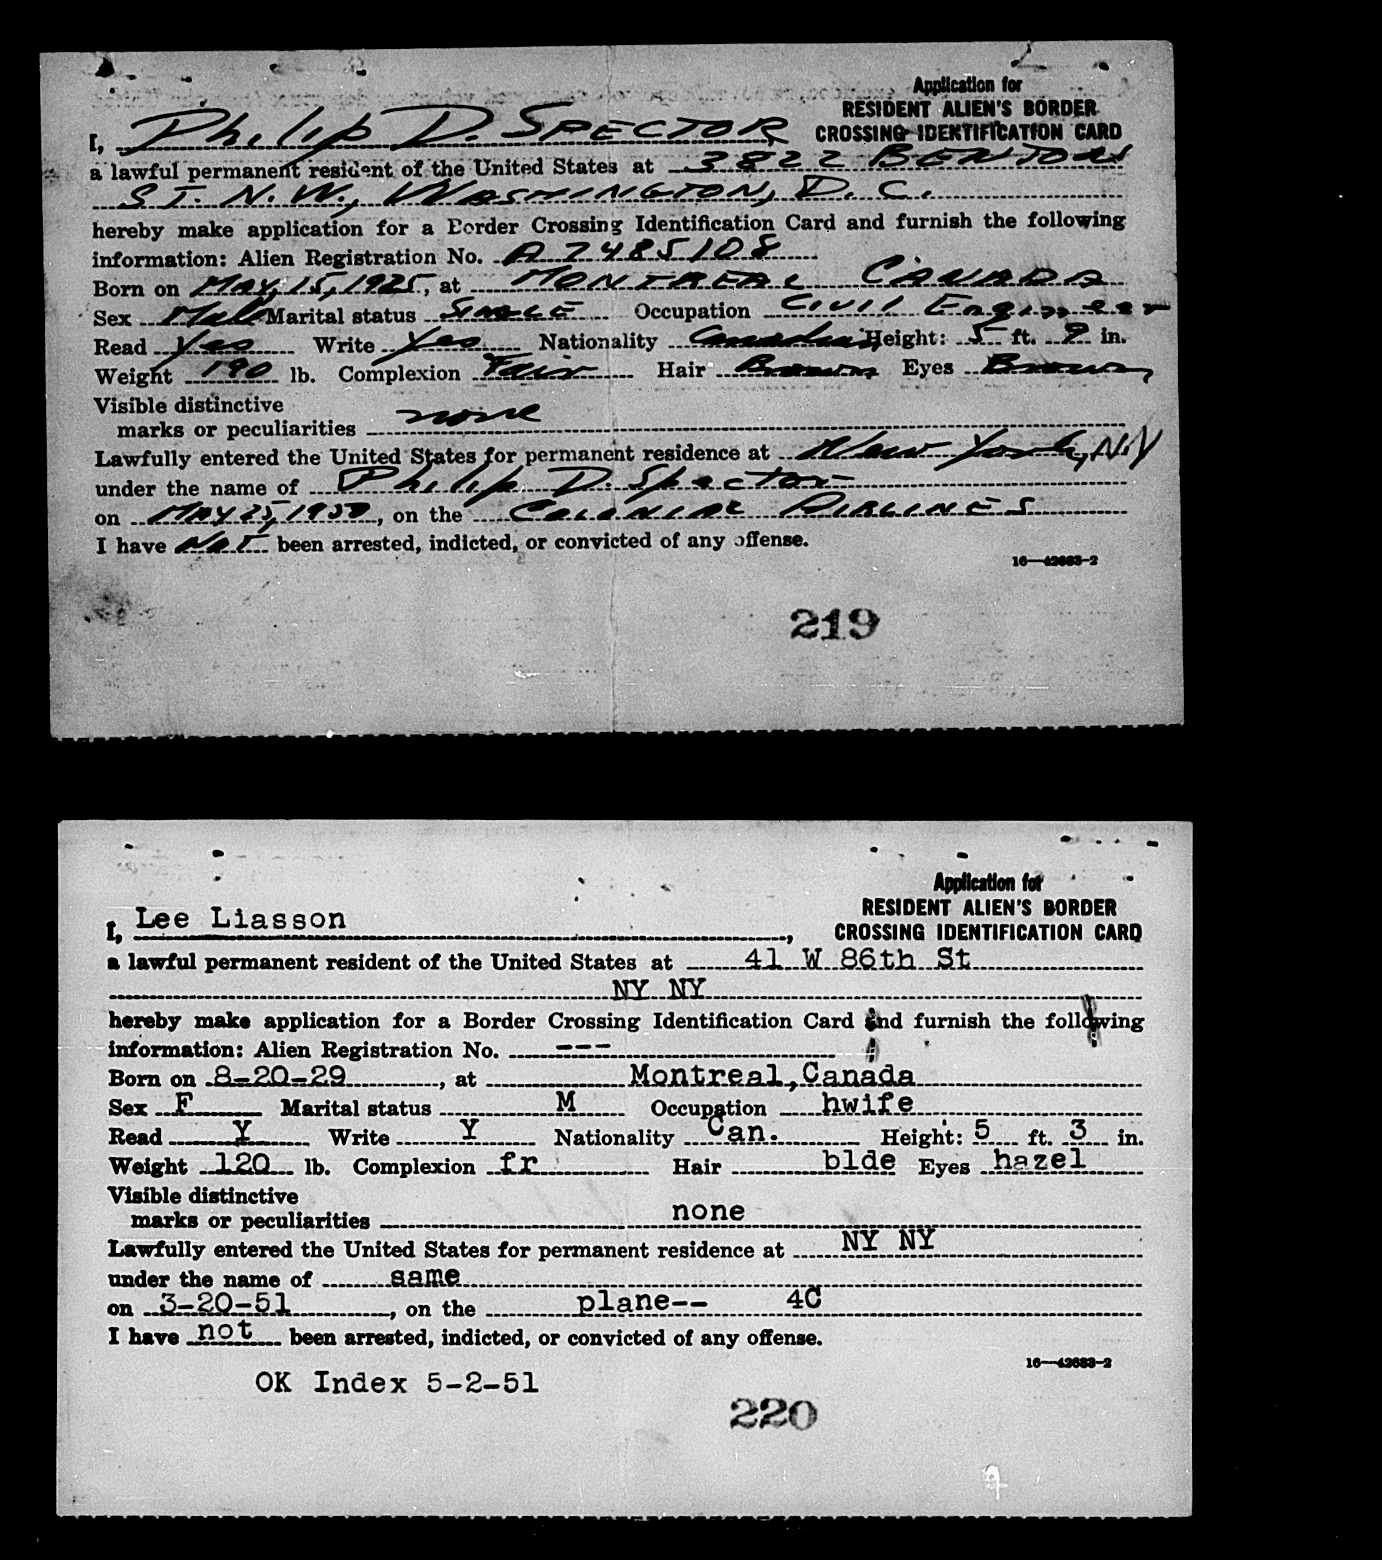 Application for
RESIDENT ALIEN'S BORDER
CROSSING IDENTIFICATION CARD
I, Philip D. SPECTOR
a lawful permanent resident of the United States at 3822 BENTON
ST. N.W., WASHINGTON, D.C.
hereby make application for a Border Crossing Identification Card and furnish the following
information: Alien Registration No. A7485108
Born on MAY, 15, 1925, at MONTREAL CANADA
Sex Male Marital status SINGLE Occupation Civil Engineer
Read Yes Write Yes Nationality Canadian Height: 5 ft. 9 in.
Weight 190 lb. Complexion Fair Hair Brown Eyes Brown
Visible distinctive
marks or peculiarities none
Lawfully entered the United States for permanent residence at New York, N.Y
under the name of Philip D. Spector
on MAY 25, 1950, on the COLONIAL AIRLINES
I have NOT been arrested, indicted, or convicted of any offense.
16—42683-2
219
Application for
RESIDENT ALIEN'S BORDER
CROSSING IDENTIFICATION CARD
I, Lee Liasson,
a lawful permanent resident of the United States at 41 W 86th St
NY NY
hereby make application for a Border Crossing Identification Card and furnish the following
information: Alien Registration No. ---
Born on 8-20-29, at Montreal,Canada
Sex F Marital status M Occupation hwife
Read Y Write Y Nationality Can. Height: 5 ft. 3 in.
Weight 120 lb. Complexion fr Hair blde Eyes hazel
Visible distinctive
marks or peculiarities none
Lawfully entered the United States for permanent residence at NY NY
under the name of same
on 3-20-51, on the plane-- 4C
I have not been arrested, indicted, or convicted of any offense.
16—42683-2
OK Index 5-2-51
220